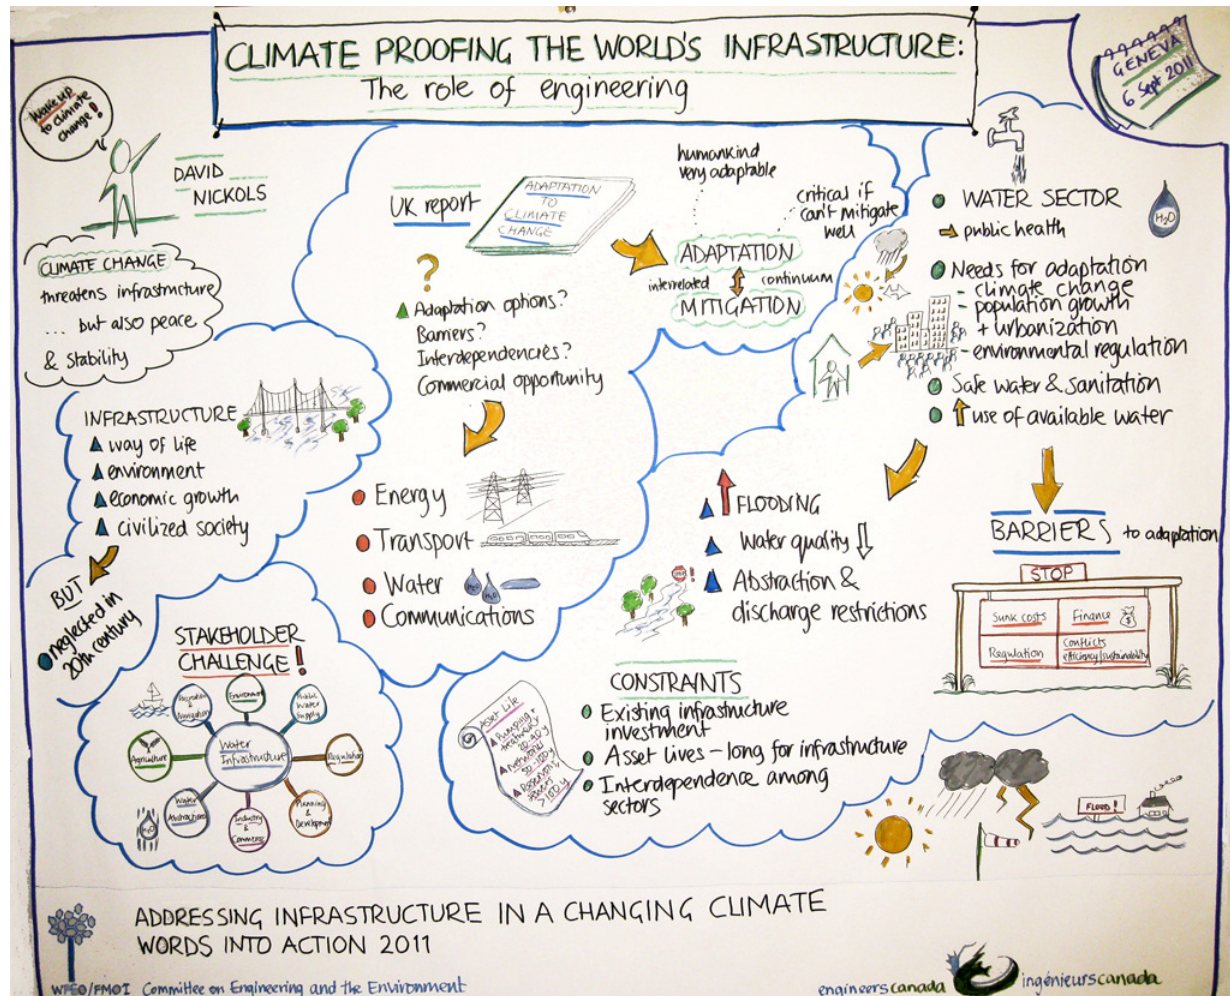 CLIMATE PROOFING THE WORLD'S INFRASTRUCTURE:
The role of engineering
GENEVA
6 Sept 2011
Wake up
to climate
change!
DAVID
NICKOLS
CLIMATE CHANGE
threatens infrastructure
... but also peace
& stability
INFRASTRUCTURE
way of life
environment
economic growth
civilized society
BUT
neglected in
20th century
STAKEHOLDER
CHALLENGE!
Water
Infrastructure
Environment
Public
Water
Supply
Regulation
Planning
&
Development
Industry
&
Commerce
Water
Abstractions
H2O
Agriculture
Recreation
&
Navigation
UK report
ADAPTATION
TO
CLIMATE
CHANGE
?
Adaptation options?
Barriers?
Interdependencies?
Commercial opportunity
Energy
Transport
Water
H2O
H2O
Communications
humankind
very adaptable
critical if
can't mitigate
well
ADAPTATION
interrelated
continuum
MITIGATION
WATER SECTOR
H2O
public health
Needs for adaptation
- climate change
- population growth
+ urbanization
- environmental regulation
Safe water & sanitation
use of available water
FLOODING
Water quality
Abstraction &
discharge restrictions
STOP!
BARRIERS to adaptation
STOP
Sunk costs
Finance
$
Regulation
Conflicts
efficiency/sustainability
CONSTRAINTS
Existing infrastructure
investment
Asset lives - long for infrastructure
Interdependence among
sectors
Asset Life
Pumping +
treatment
Networks
>100y
FLOOD!
ADDRESSING INFRASTRUCTURE IN A CHANGING CLIMATE
WORDS INTO ACTION 2011
WFEO/FMOI Committee on Engineering and the Environment
engineerscanada
ingénieurscanada